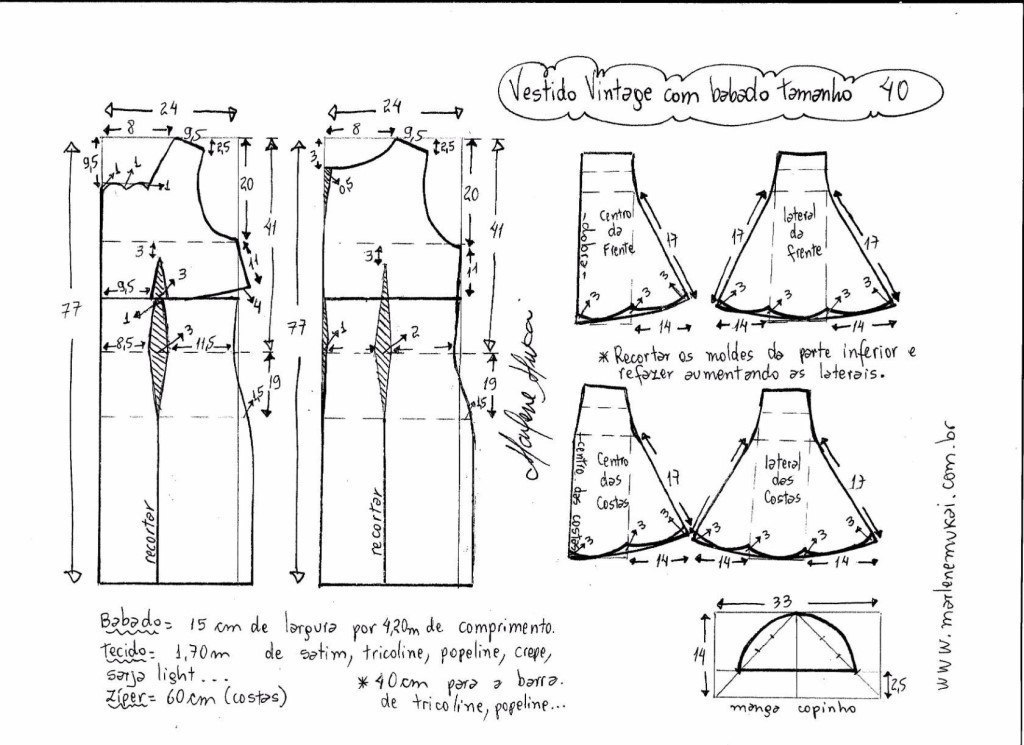 Vestido Vintage com babado tamanho 40
24
8
9,5
2,5
9,5
1
1
1
20
41
77
3
11
3
9,5
4
1
3
8,5
11,5
19
1,5
recortar
24
8
9,5
2,5
3
0,5
20
41
77
3
11
1
2
19
1,5
recortar
Marlene Mukai
centro
da
Frente
-dobra-
17
3
3
3
14
lateral
da
frente
17
17
3
3
3
3
14
14
* Recortar os moldes da parte inferior e
refazer aumentando as laterais.
Centro
das
Costas
centro das costas
17
3
3
3
14
lateral
das
Costas
17
17
3
3
3
3
14
14
33
14
2,5
manga copinho
www.marlenemukai.com.br
Babado= 15 cm de largura por 4,20m de comprimento.
tecido= 1,70m de satim, tricoline, popeline, crepe,
sarja light...
Zíper= 60cm (costas)
* 40 cm para a barra.
de tricoline, popeline...